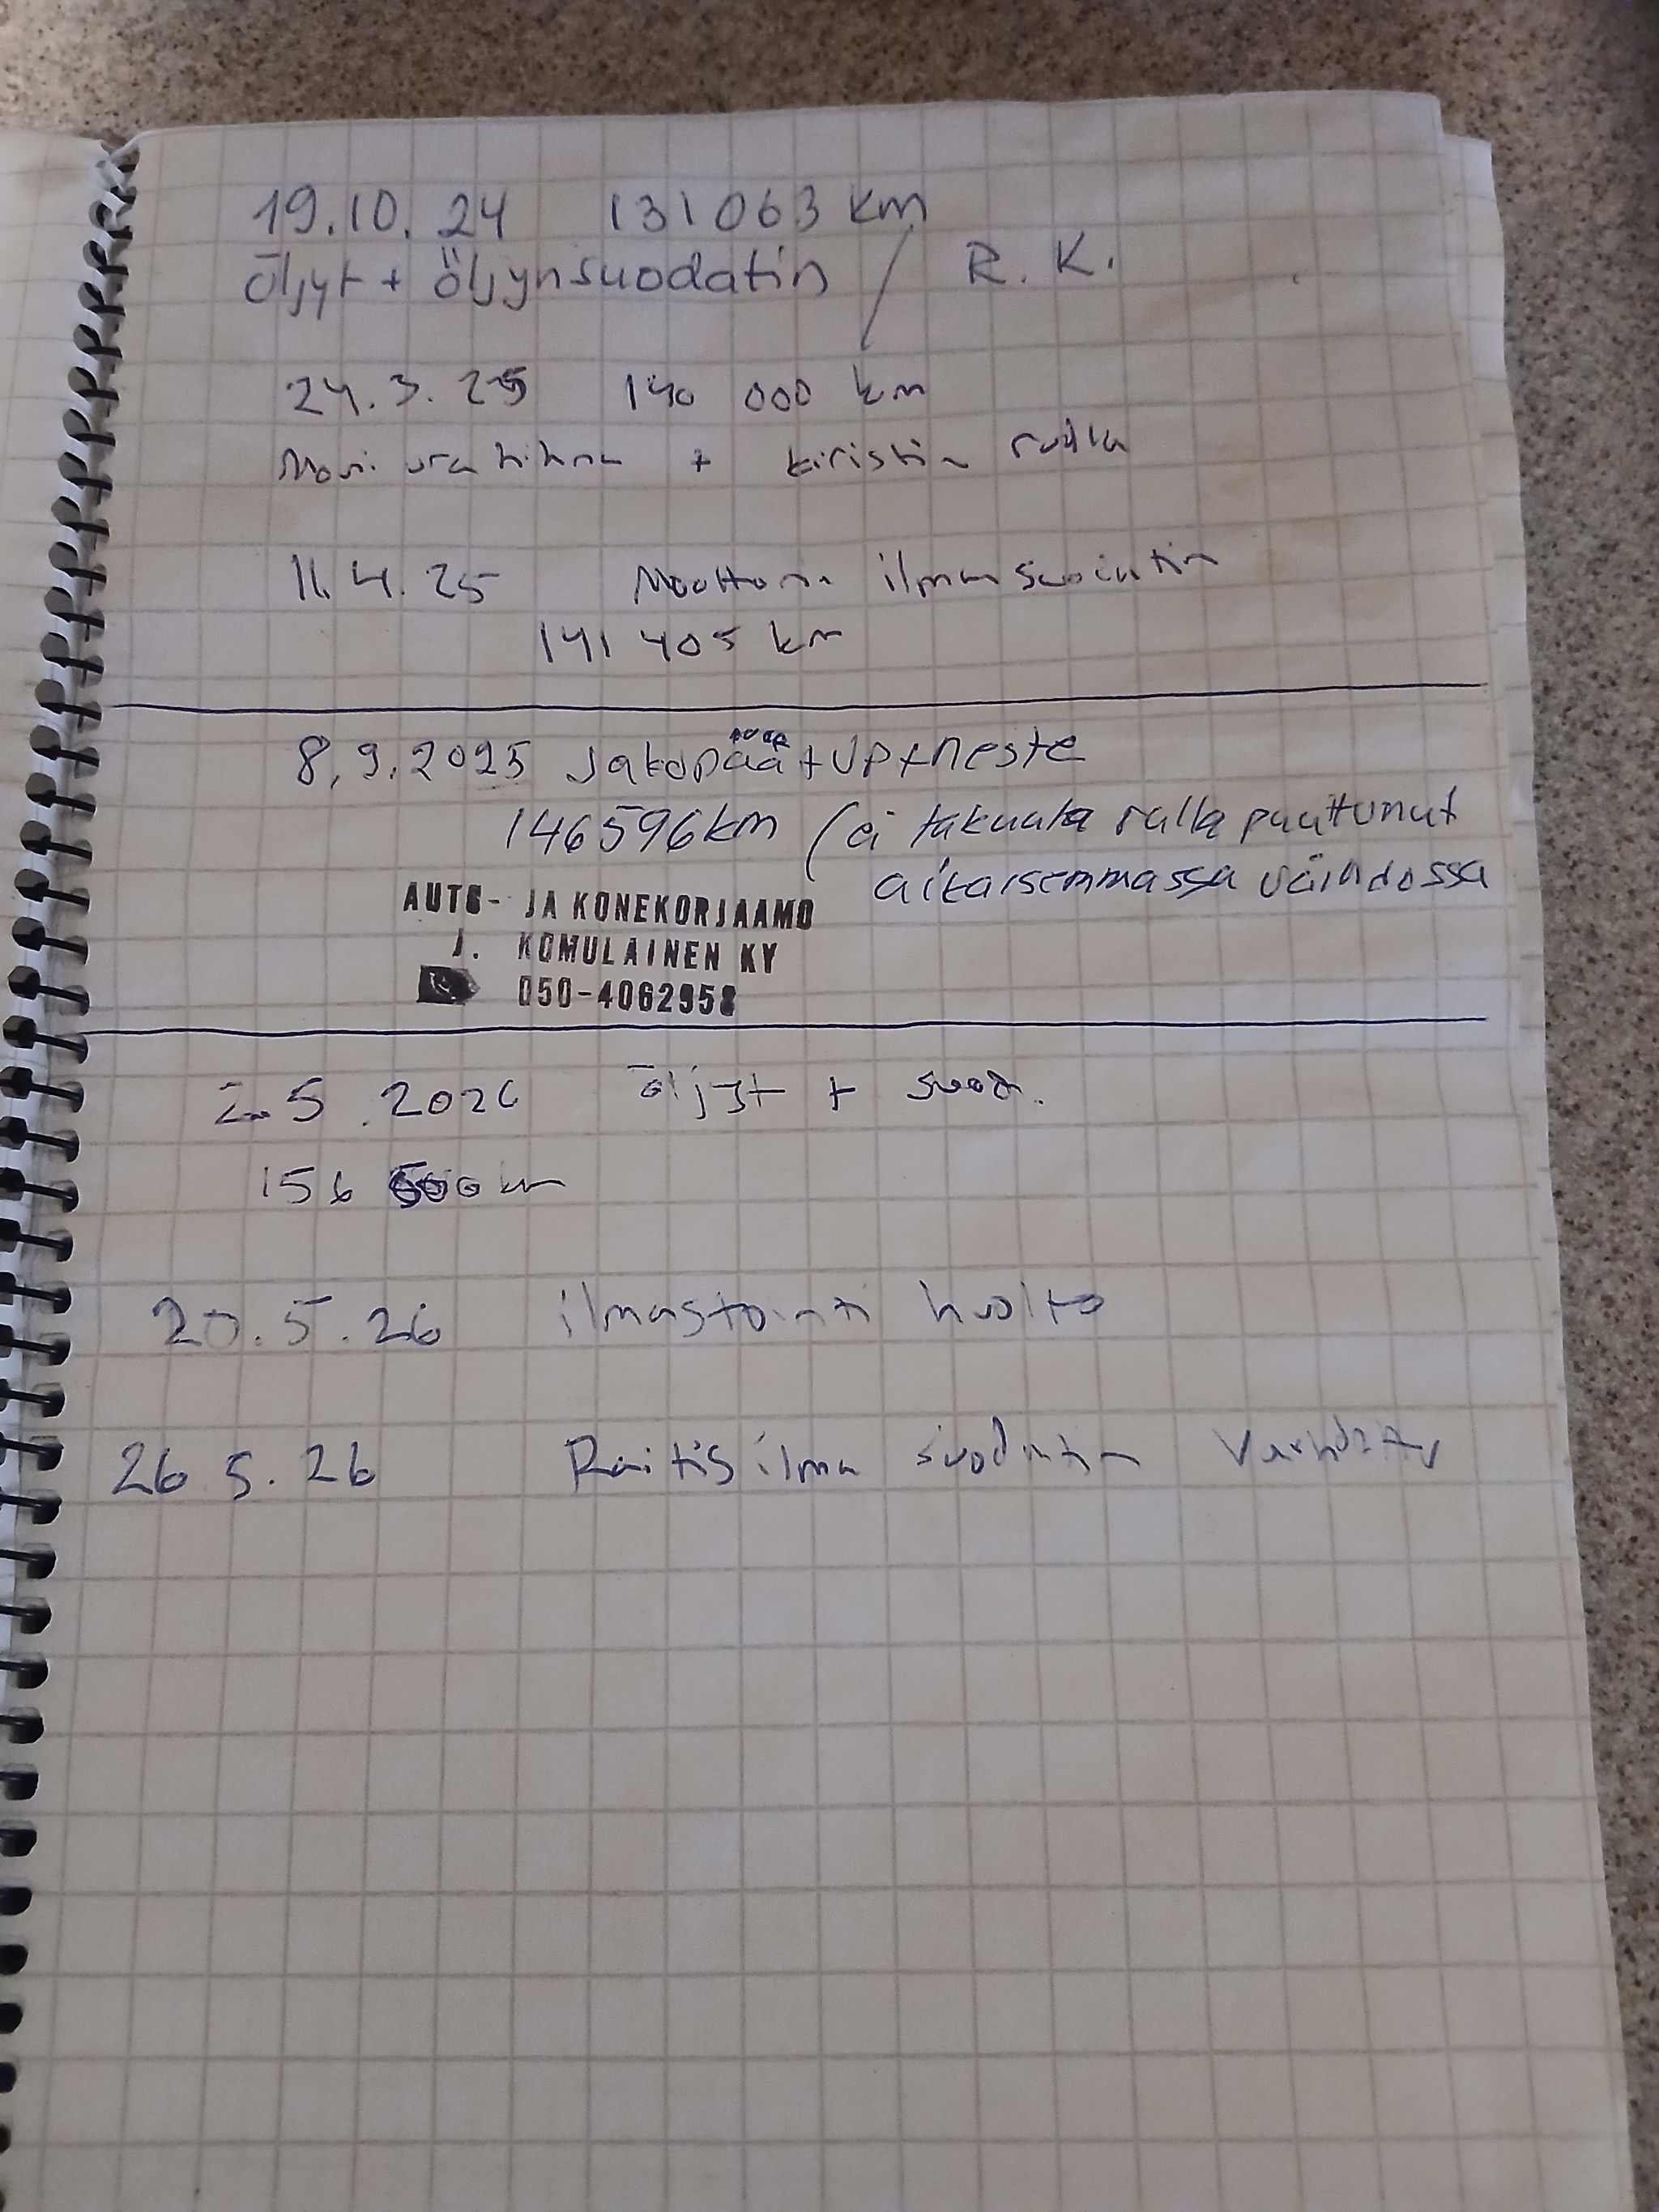 19.10.24 131063 km
Öljyt + öljynsuodatin / R.K.
24.3.25 140 000 km
Moniurahihna + kiristin rulla
11.4.25 Moottorin ilmansuodatin
141 405 km
8.9.2025 Jakopää + VP + neste
146596km (ei takuuta rulla puuttunut
aikaisemmassa vaihdossa
AUTO- JA KONEKORJAAMO
J. KOMULAINEN KY
050-4062958
2.5.2026 Öljyt + suod.
156 km
20.5.26 ilmastointi huolto
26.5.26 Raitisilma suodatin vaihdettu